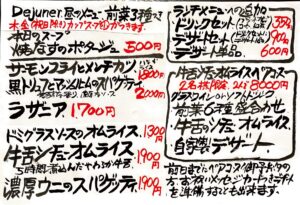 Dejuner 昼のメニュー 前菜3種つき
本日のスープ
焼なすのポタージュ 500円
サーモンフライとメンチカツ 1800円
黒トリュフとマッシュルームのスパゲッティ 2000円
ラザニア 1,700円
ドミグラスソースのオムライス 1300円
牛舌シチューオムライス 1900円
5時間煮込んだやわらか牛舌
濃厚ウニのスパゲッティ 1900円
ランチメニューへの追加
ドリンクセット 350円
デザートセット 900円
デザート単品 600円
牛舌シチューオムライスペアコース
2名様
グラスワイン
前菜6種盛合わせ
牛舌シチューオムライス
自家製デザート
前日までにペアコース御予約の
方、お祝いメッセージカード付きデザートを
準備することも出来ます。